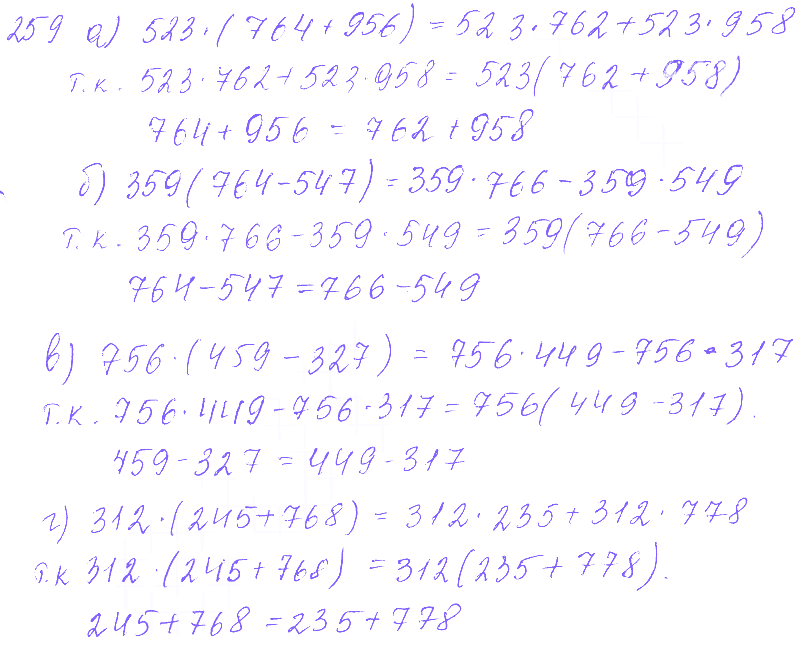 259 а) 523·(764+956)=523·762+523·958
т.к. 523·762+523·958=523(762+958)
764+956=762+958
б) 359(764-547)=359·766-359·549
т.к. 359·766-359·549=359(766-549)
764-547=766-549
в) 756·(459-327)=756·449-756·317
т.к. 756·449-756·317=756(449-317).
459-327=449-317
г) 312·(245+768)=312·235+312·778
т.к 312·(245+768)=312(235+778).
245+768=235+778